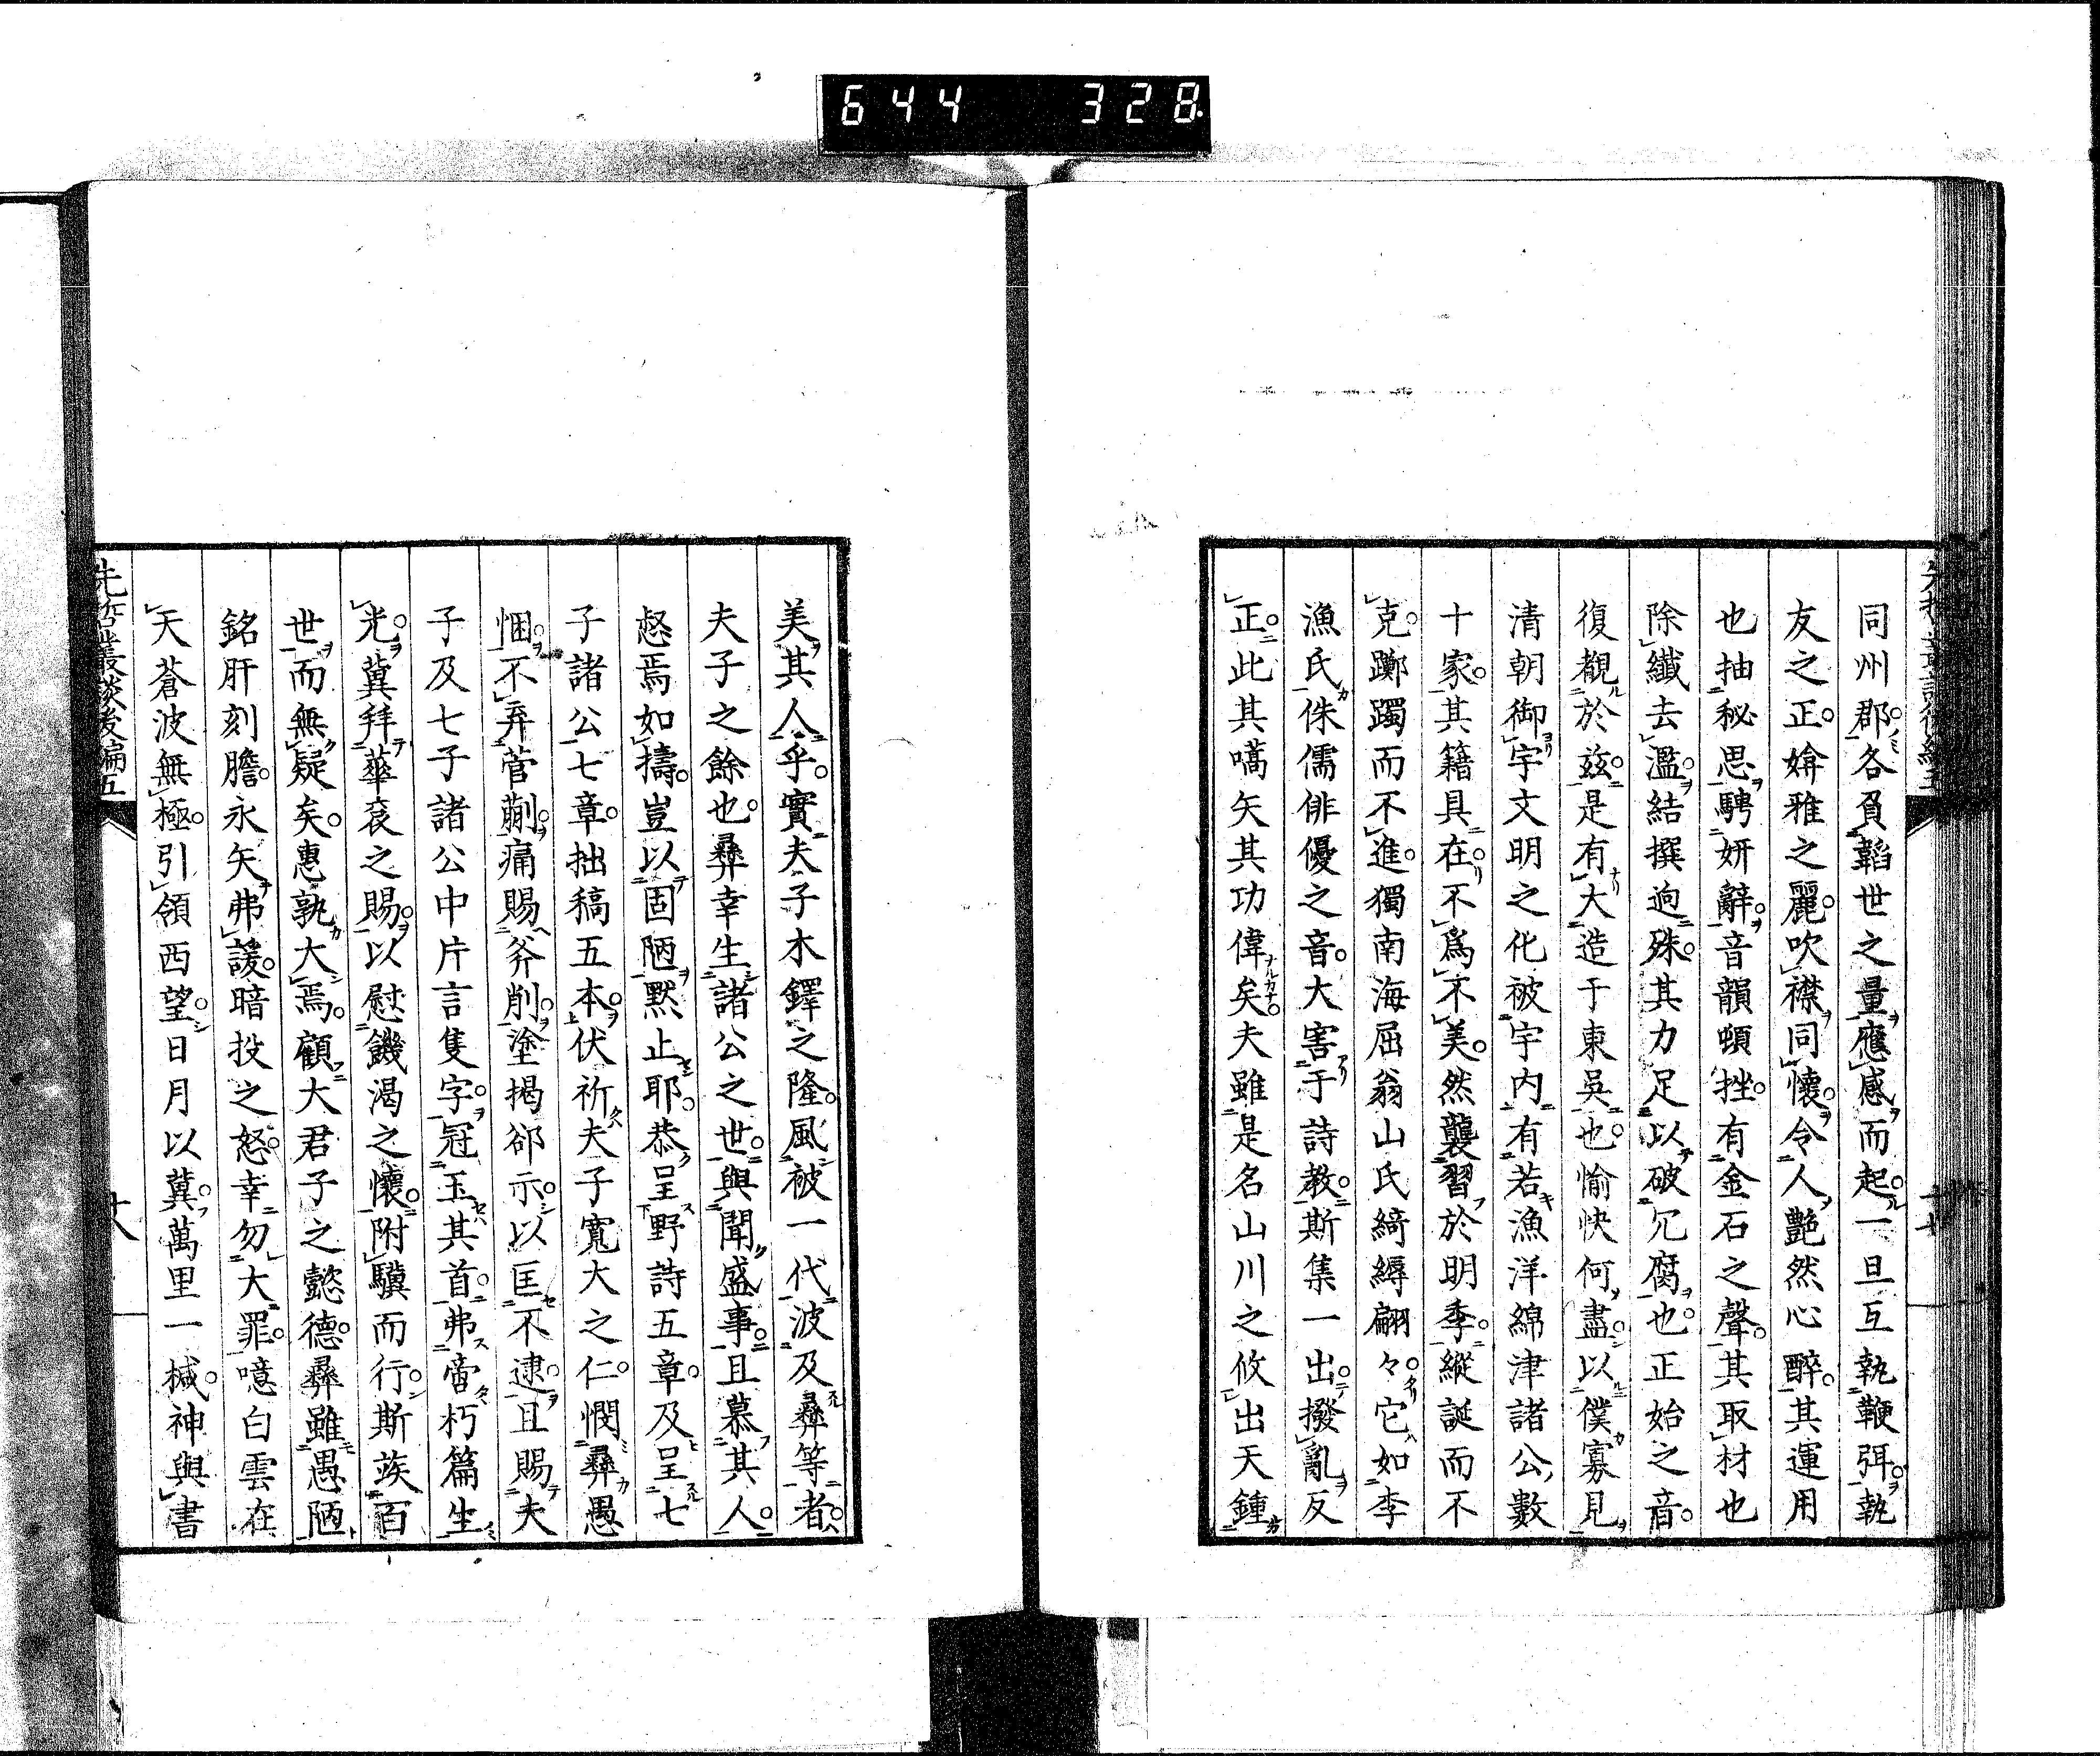 644 328
同州郡各負韜世之量應感而起一旦互執鞭弭執
友之正媕雅之麗吹襟同懷令人艶然心醉其運用
也抽秘思騁妍辭音韻頓挫有金石之聲其取材也
除纖去濫結撰逈殊其力足以破冗腐也正始之音
復覩於茲是有大造于東吳也愉快何盡以僕寡見
清朝御宇文明之化被宇内有若漁洋綿津諸公數
十家其籍具在不爲不美然襲習於明季縱誕而不
克躑躅而不進獨南海屈翁山氏綺縟翩々它如李
漁氏侏儒俳優之音大害于詩教斯集一出撥亂反
正此其嚆矢其功偉矣夫雖是名山川之攸出天鍾
美其人乎實夫子木鐸之隆風被一代波及彛等者
夫子之餘也彛幸生諸公之世與聞盛事且慕其人
惄焉如擣豈以固陋默止耶恭呈野詩五章及呈七
子諸公七章拙稿五本伏祈夫子寬大之仁憫彛愚
悃不弃菅蒯痛賜斧削塗揭郤示以匡不逮且賜夫
子及七子諸公中片言隻字冠玉其首弗啻朽篇生
光冀拜華袞之賜以慰饑渴之懷附驥而行斯蔟百
世而無疑矣惠孰大焉顧大君子之懿德彛雖愚陋
銘肝刻膽永矢弗諼暗投之怒幸勿大罪噫白雲在
天蒼波無極引領西望日月以冀萬里一椷神與書
先哲叢談後編五
十八